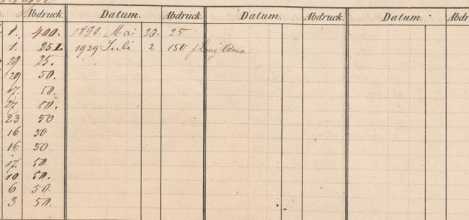 Abdruck. Datum. Abdruck. Datum. Abdruck. Datum. Abdr
1. 400. 1890 Mai 23. 25
1. 252. 1929 Juli 2 150
29 25.
29 50.
17. 50.
27. 50.
23 50
16 30
16 50
12. 50.
10 50.
6 50.
3 50.